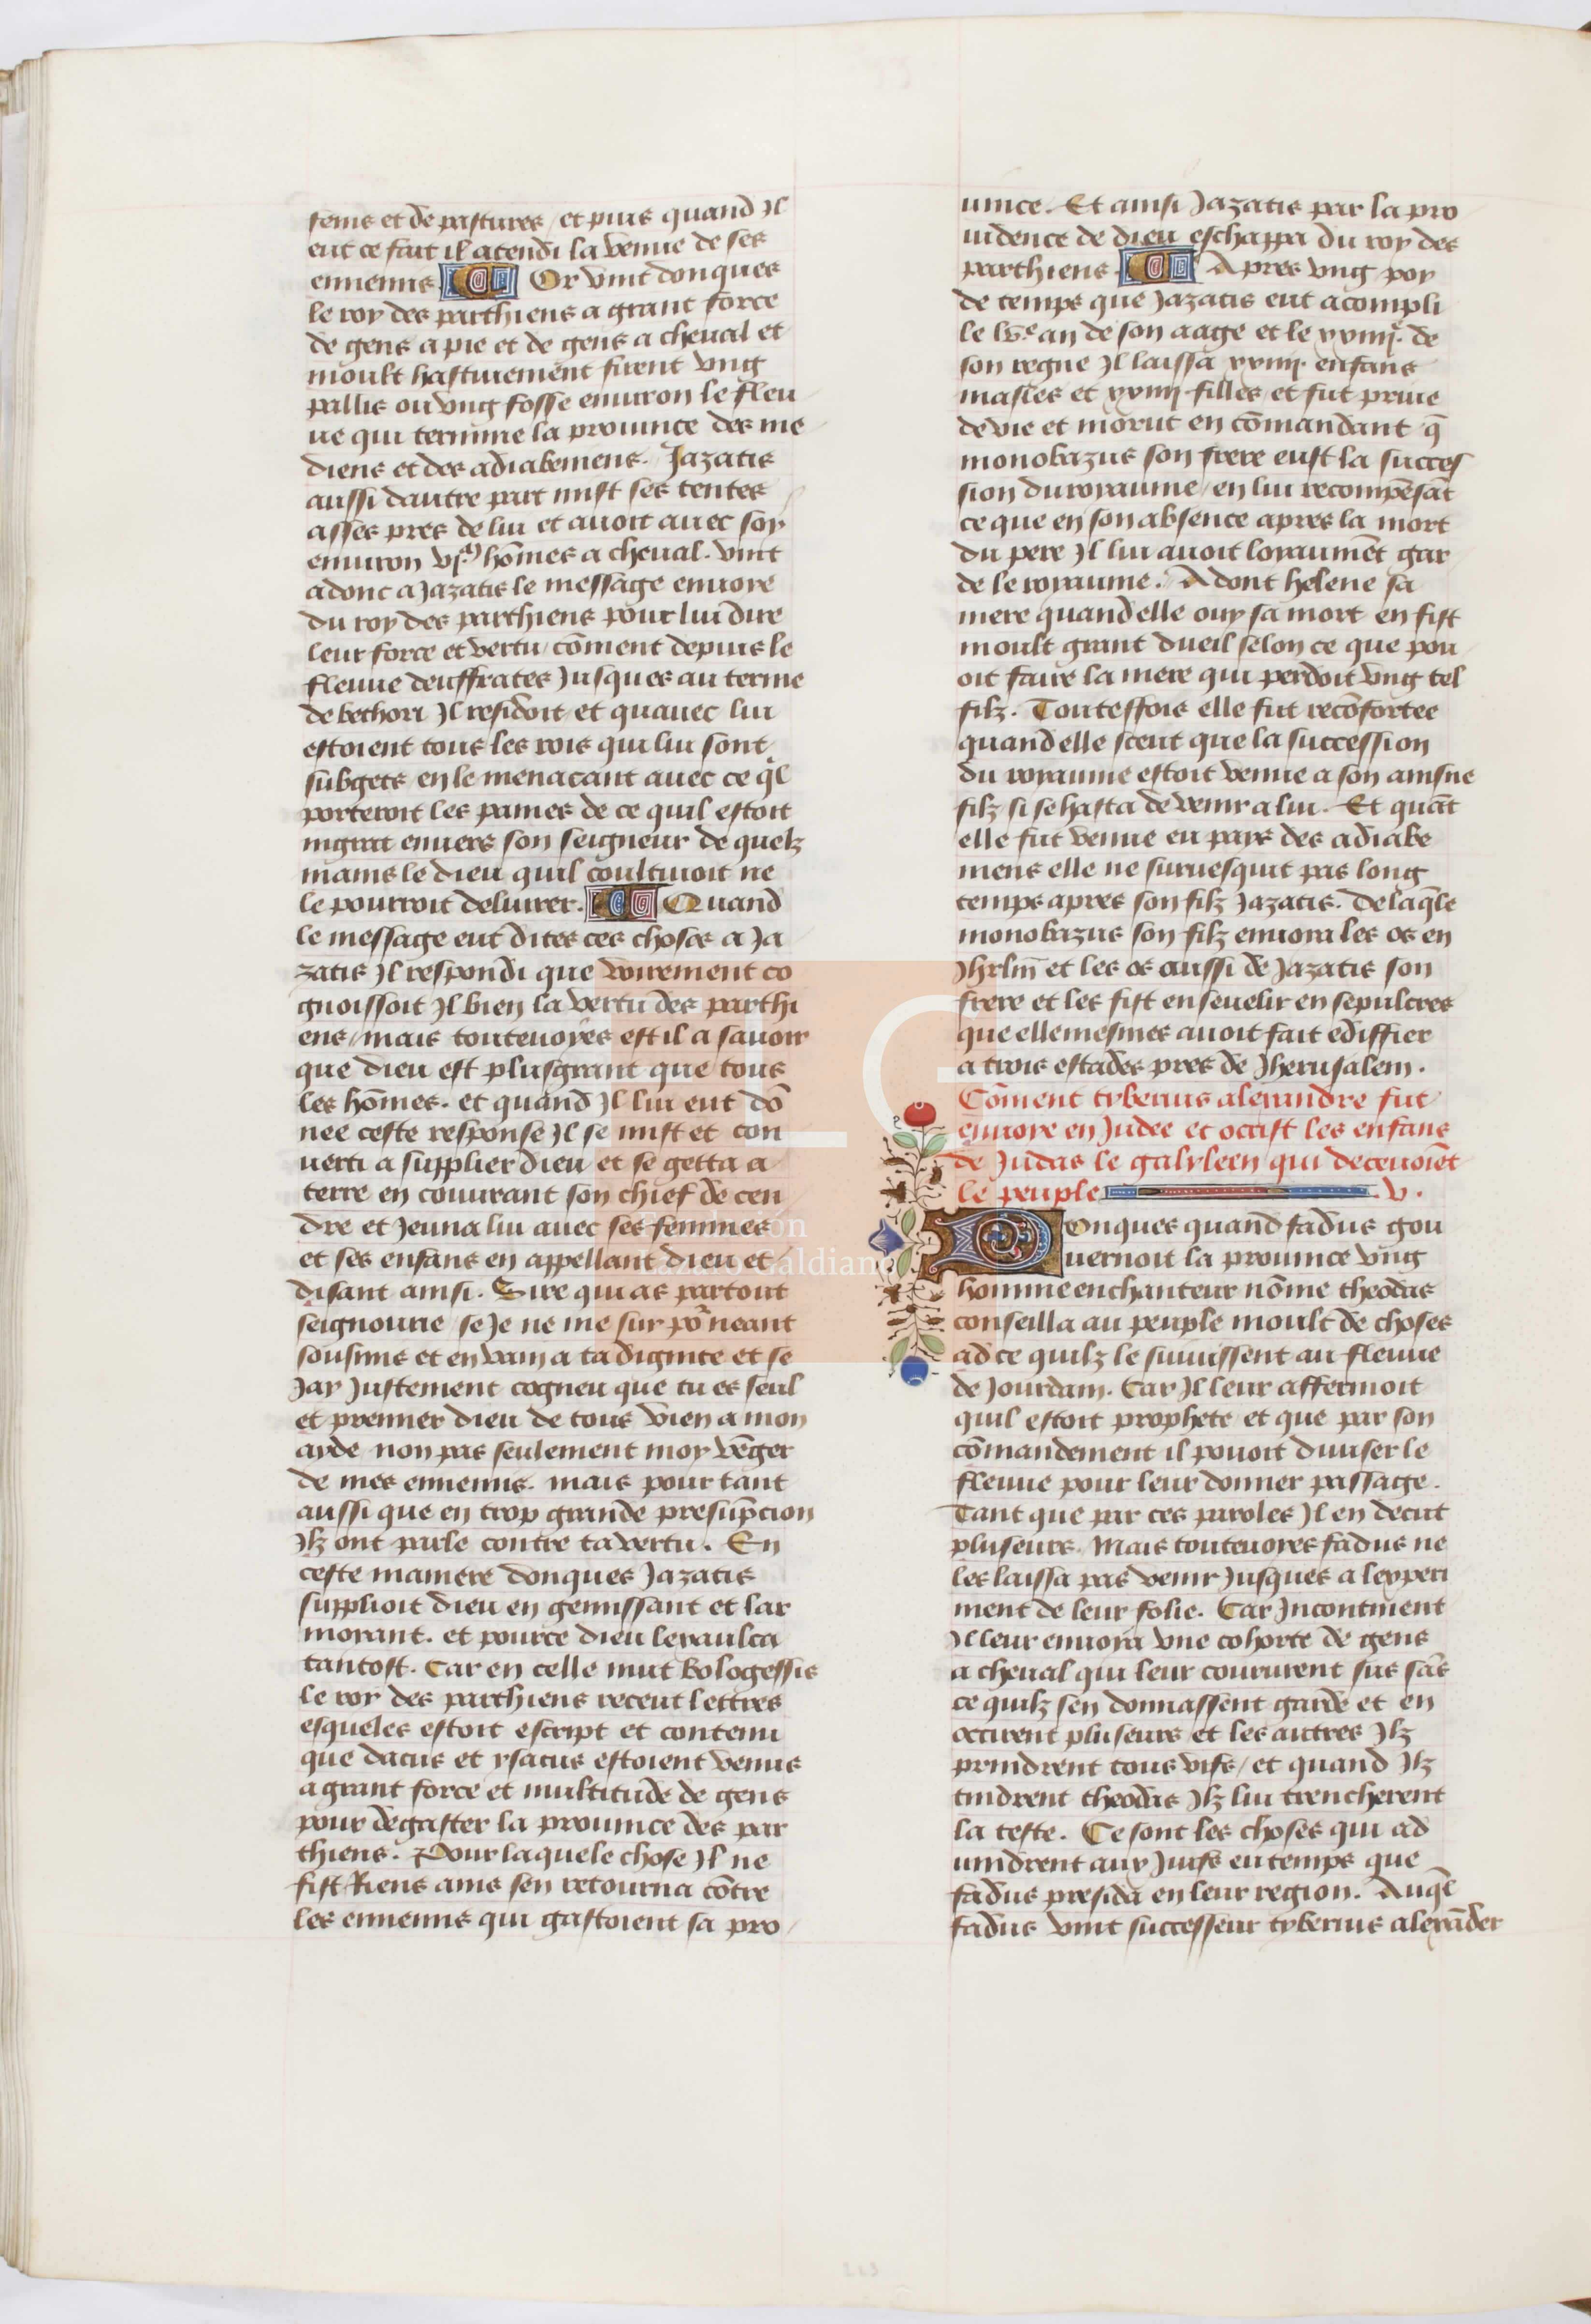 sems et de pastures / et puis quand Jl
eut ce fait il atendi la venue de ses
ennemis Or vint donques
le roy des parthiens a grant force
de gens a pie et de gens a cheual et
moult hastiuement firent vng
pallis ou vng fosse enuiron le fleu
ue qui termine la prouince des me
diens et des adiabemens. Jazatis
aussi dautre part mist ses tentes
asses pres de lui et auoit auec soy
enuiron vj.ᵐ hōmes a cheual. vint
adonc a Jazatis le message enuoye
du roy des parthiens pour lui dire
leur force et vertu / cōment depuis le
fleuue deuffrates Jusques au terme
de bethori Jl residoit et quauec lui
estoient tous les rois qui lui sont
subgets en le menacant auec ce q̄l
porteroit les paines de ce quil estoit
ingrat enuers son seigneur de quelz
mains le dieu quil coultiuoit ne
le pourroit deliurer. Quand
le message eut dites ces choses a Ja
zatis Jl respondi que voirement co
gnoissoit Jl bien la vertu des parthi
ens / mais touteuoyes est il a sauoir
que dieu est plusgrant que tous
les hōmes. et quand Jl lui eut dō
nee ceste response Jl se mist et con
uerti a supplier dieu et se getta a
terre en couurant son chief de cen
dre et Jeuna lui auec ses femmes
et ses enfans en appellant dieu et
disant ainsi. Sire qui as partout
seignourie se Je ne me sur po᷑ neant
sousmis et en vain a ta dignite et se
Jay Justement cogneu que tu es seul
et premier dieu de tous vien a mon
ayde non pas seulement moy vēger
de mes ennemis. mais pour tant
aussi que en trop grande presūpcion
Jlz ont parle contre ta vertu. En
ceste maniere donques Jazatis
supplioit dieu en gemissant et lar
moyant. et pource dieu lexaulca
tantost. Car en celle nuit vologessis
le roy des parthiens receut lettres
esqueles estoit escript et contenu
que dacus et ysacus estoient venus
a grant force et multitude de gens
pour degaster la prouince des par
thiens. Pour laquele chose Jl ne
fist Riens ains sen retourna cōtre
les ennemis qui gastoient sa pro
uince. Et ainsi Jazatis par la pro
uidence de dieu eschappa du roy des
parthiens. Apres vng poy
de temps que Jazatis eut acompli
le lv.ᵉ an de son aage et le xxiiij.ᵉ de
son regne Jl laissa xxiiij. enfans
masles et xxiiij filles / et fut priue
de vie et morut en cōmandant q̄
monobazus son frere eust la succes
sion du royaume / en lui recompēsāt
ce que en son absence apres la mort
du pere Jl lui auoit loyaumēt gar
de le royaume. Adont helene sa
mere quand elle ouy sa mort en fist
moult grant dueil selon ce que pou
oit faire la mere qui perdoit vng tel
filz. Toutesfois elle fut recōfortee
quand elle sceut que la succession
du royaume estoit venue a son ainsne
filz si se hasta de venir a lui. Et quāt
elle fut venue eu pays des adiabe
mens elle ne suruesquit pas long
temps apres son filz Jazatis. De laq̄le
monobazus son filz enuoya les os en
Jhrlm̄ et les os aussi de Jazatis son
frere et les fist enseuelir en sepulcres
que ellemesmes auoit fait ediffier
a trois estades pres de Jherusalem.
Cōment tyberius alexandre fut
enuoye en Judee et occist les enfans
de Judas le galyleen qui deceuoiēt
le peuple v.
Donques quand fadus gou
uernoit la prouince vng
homme enchanteur nōme theodas
conseilla au peuple moult de choses
ad ce quilz le suiuissent au fleuue
de Jourdain. Car Jl leur affermoit
quil estoit prophete et que par son
cōmandement il pouoit diuiser le
fleuue pour leur donner passage.
Tant que par ces paroles Jl en decut
pluseurs. Mais touteuoyes fadus ne
les laissa pas venir Jusques a lexperi
ment de leur folie. Car Jncontinent
Jl leur enuoya vne cohorte de gens
a cheual qui leur coururent sus sās
ce quilz sen donnassent garde et en
occirent pluseurs et les autres Jlz
prindrent tous vifs / et quand Jlz
tindrent theodas Jlz lui trencherent
la teste. Ce sont les choses qui ad
uindrent aux Juifs eu temps que
fadus presida en leur region. Auq̄l
fadus vint successeur tyberius alexāder
LG
Fundación
Lázaro Galdiano